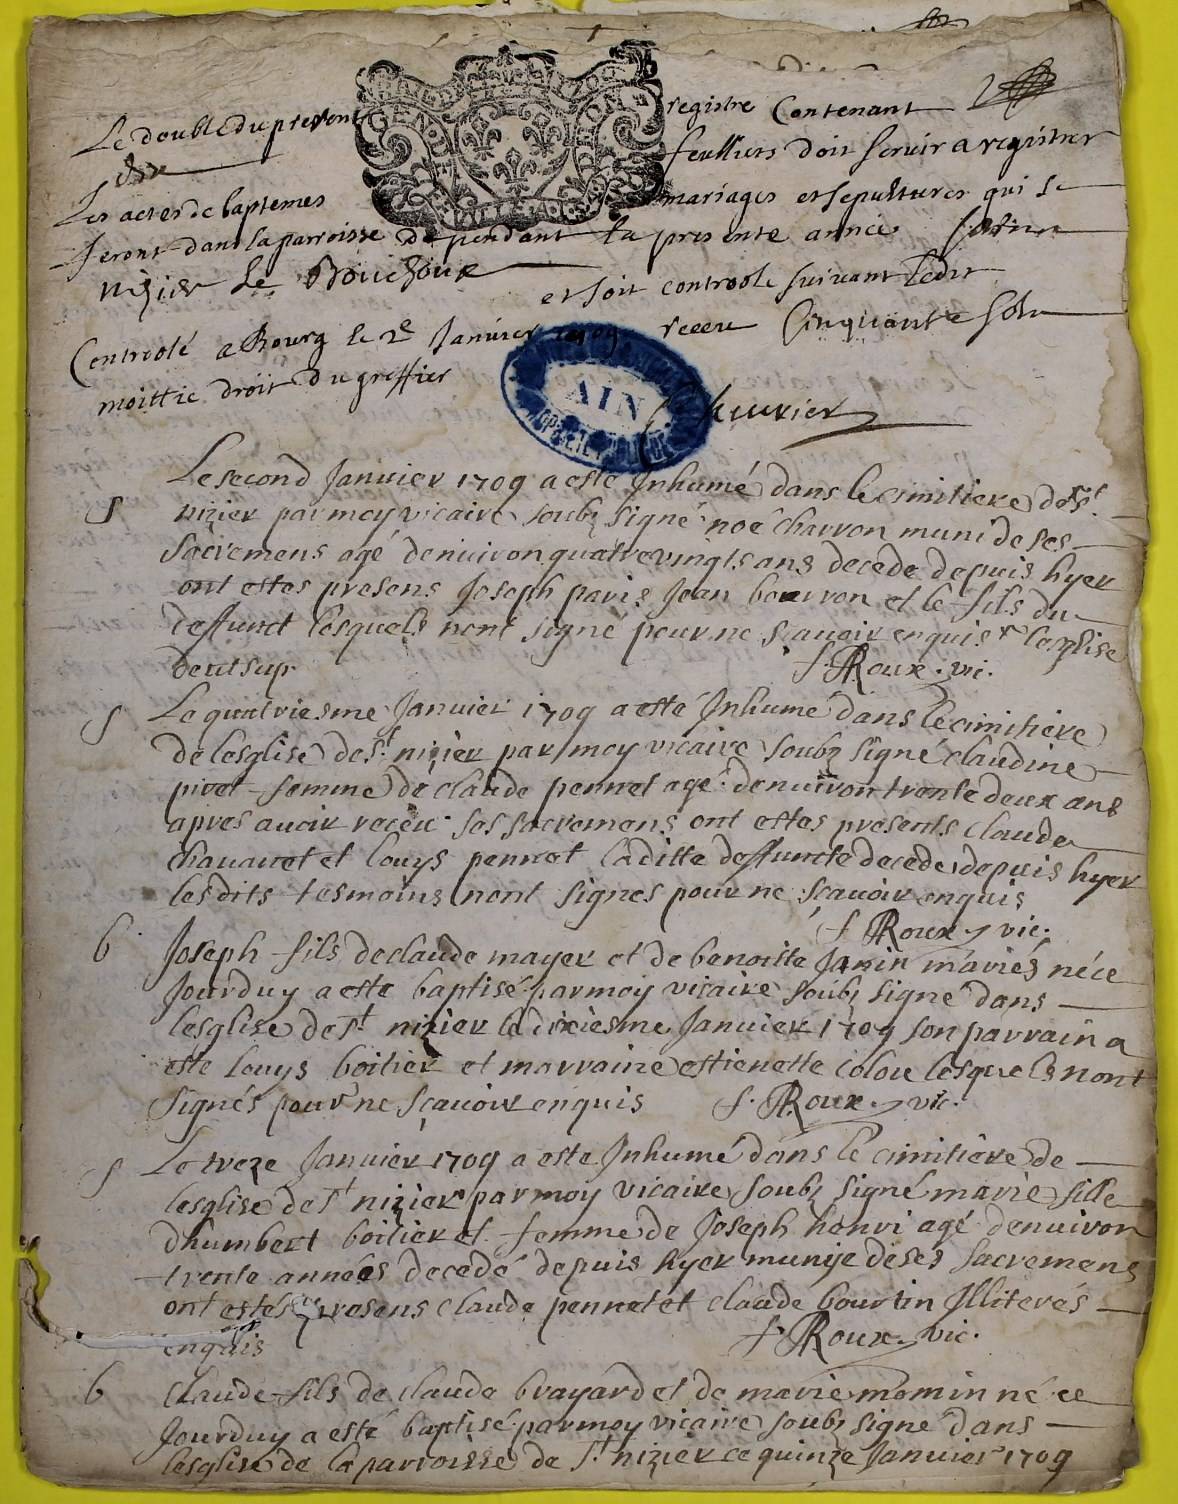 Le double du present registre Contenant
dix feulliers doit servir a registrer
Les actes de baptemes mariages et sepultures qui se
feront dans la parroisse dependant la presente année
nizier le Bouchoux et soit controole suivant ledit
Controlé a Bourg le 2e Janvier 1709 receu Cinquante sols
moittie droit du greffier
AIN
s Le second Janvier 1709 a este Inhumé dans le cimitiere de st.
nizier par moy vicaire soubz signé noé charron muni de ses
sacremens agé denuiron quatre vingts ans decede depuis hyer
ont estes presens Joseph paris Jean bourron et le fils du
deffunct lesquels nont signé pour ne scauoir enquis leglise
deut sup. f. Roux. vic.
s Le quatriesme Janvier 1709 a esté Inhumé dans le cimitiere
de lesglise de st. nizier par moy vicaire soubz signé claudine
pivet femme de claude pennet agé denuiron trente deux ans
apres auoir receu ses sacremens ont estes presents claude
chauanet et louys pennet laditte deffuncte decede depuis hyer
lesdits tesmoins nont signes pour ne scauoir enquis
f Roux vic.
b Joseph fils de claude mayer et de benoitte Janin mariés né ce
Jourduy a este baptisé par moy vicaire soubz signé dans
lesglise de st nizier le dixiesme Janvier 1709 son parrain a
este louys boitier et marraine estienette colou lesquels nont
signés pour ne scauoir enquis f. Roux vic.
s Le treze Janvier 1709 a este Inhumé dans le cimitiere de
lesglise de st nizier par moy vicaire soubz signé marie fille
dhumbert boitier et femme de Joseph henri agé denuiron
trente années decedé depuis hyer munije de ses sacremens
ont estes presens claude pennet et claude bourtin Illiterés
enquis f. Roux vic.
b Claude fils de claude brayard et de marie momin né ce
Jourduy a esté baptisé par moy vicaire soubz signé dans
lesglise de la parroisse de st nizier ce quinze Janvier 1709